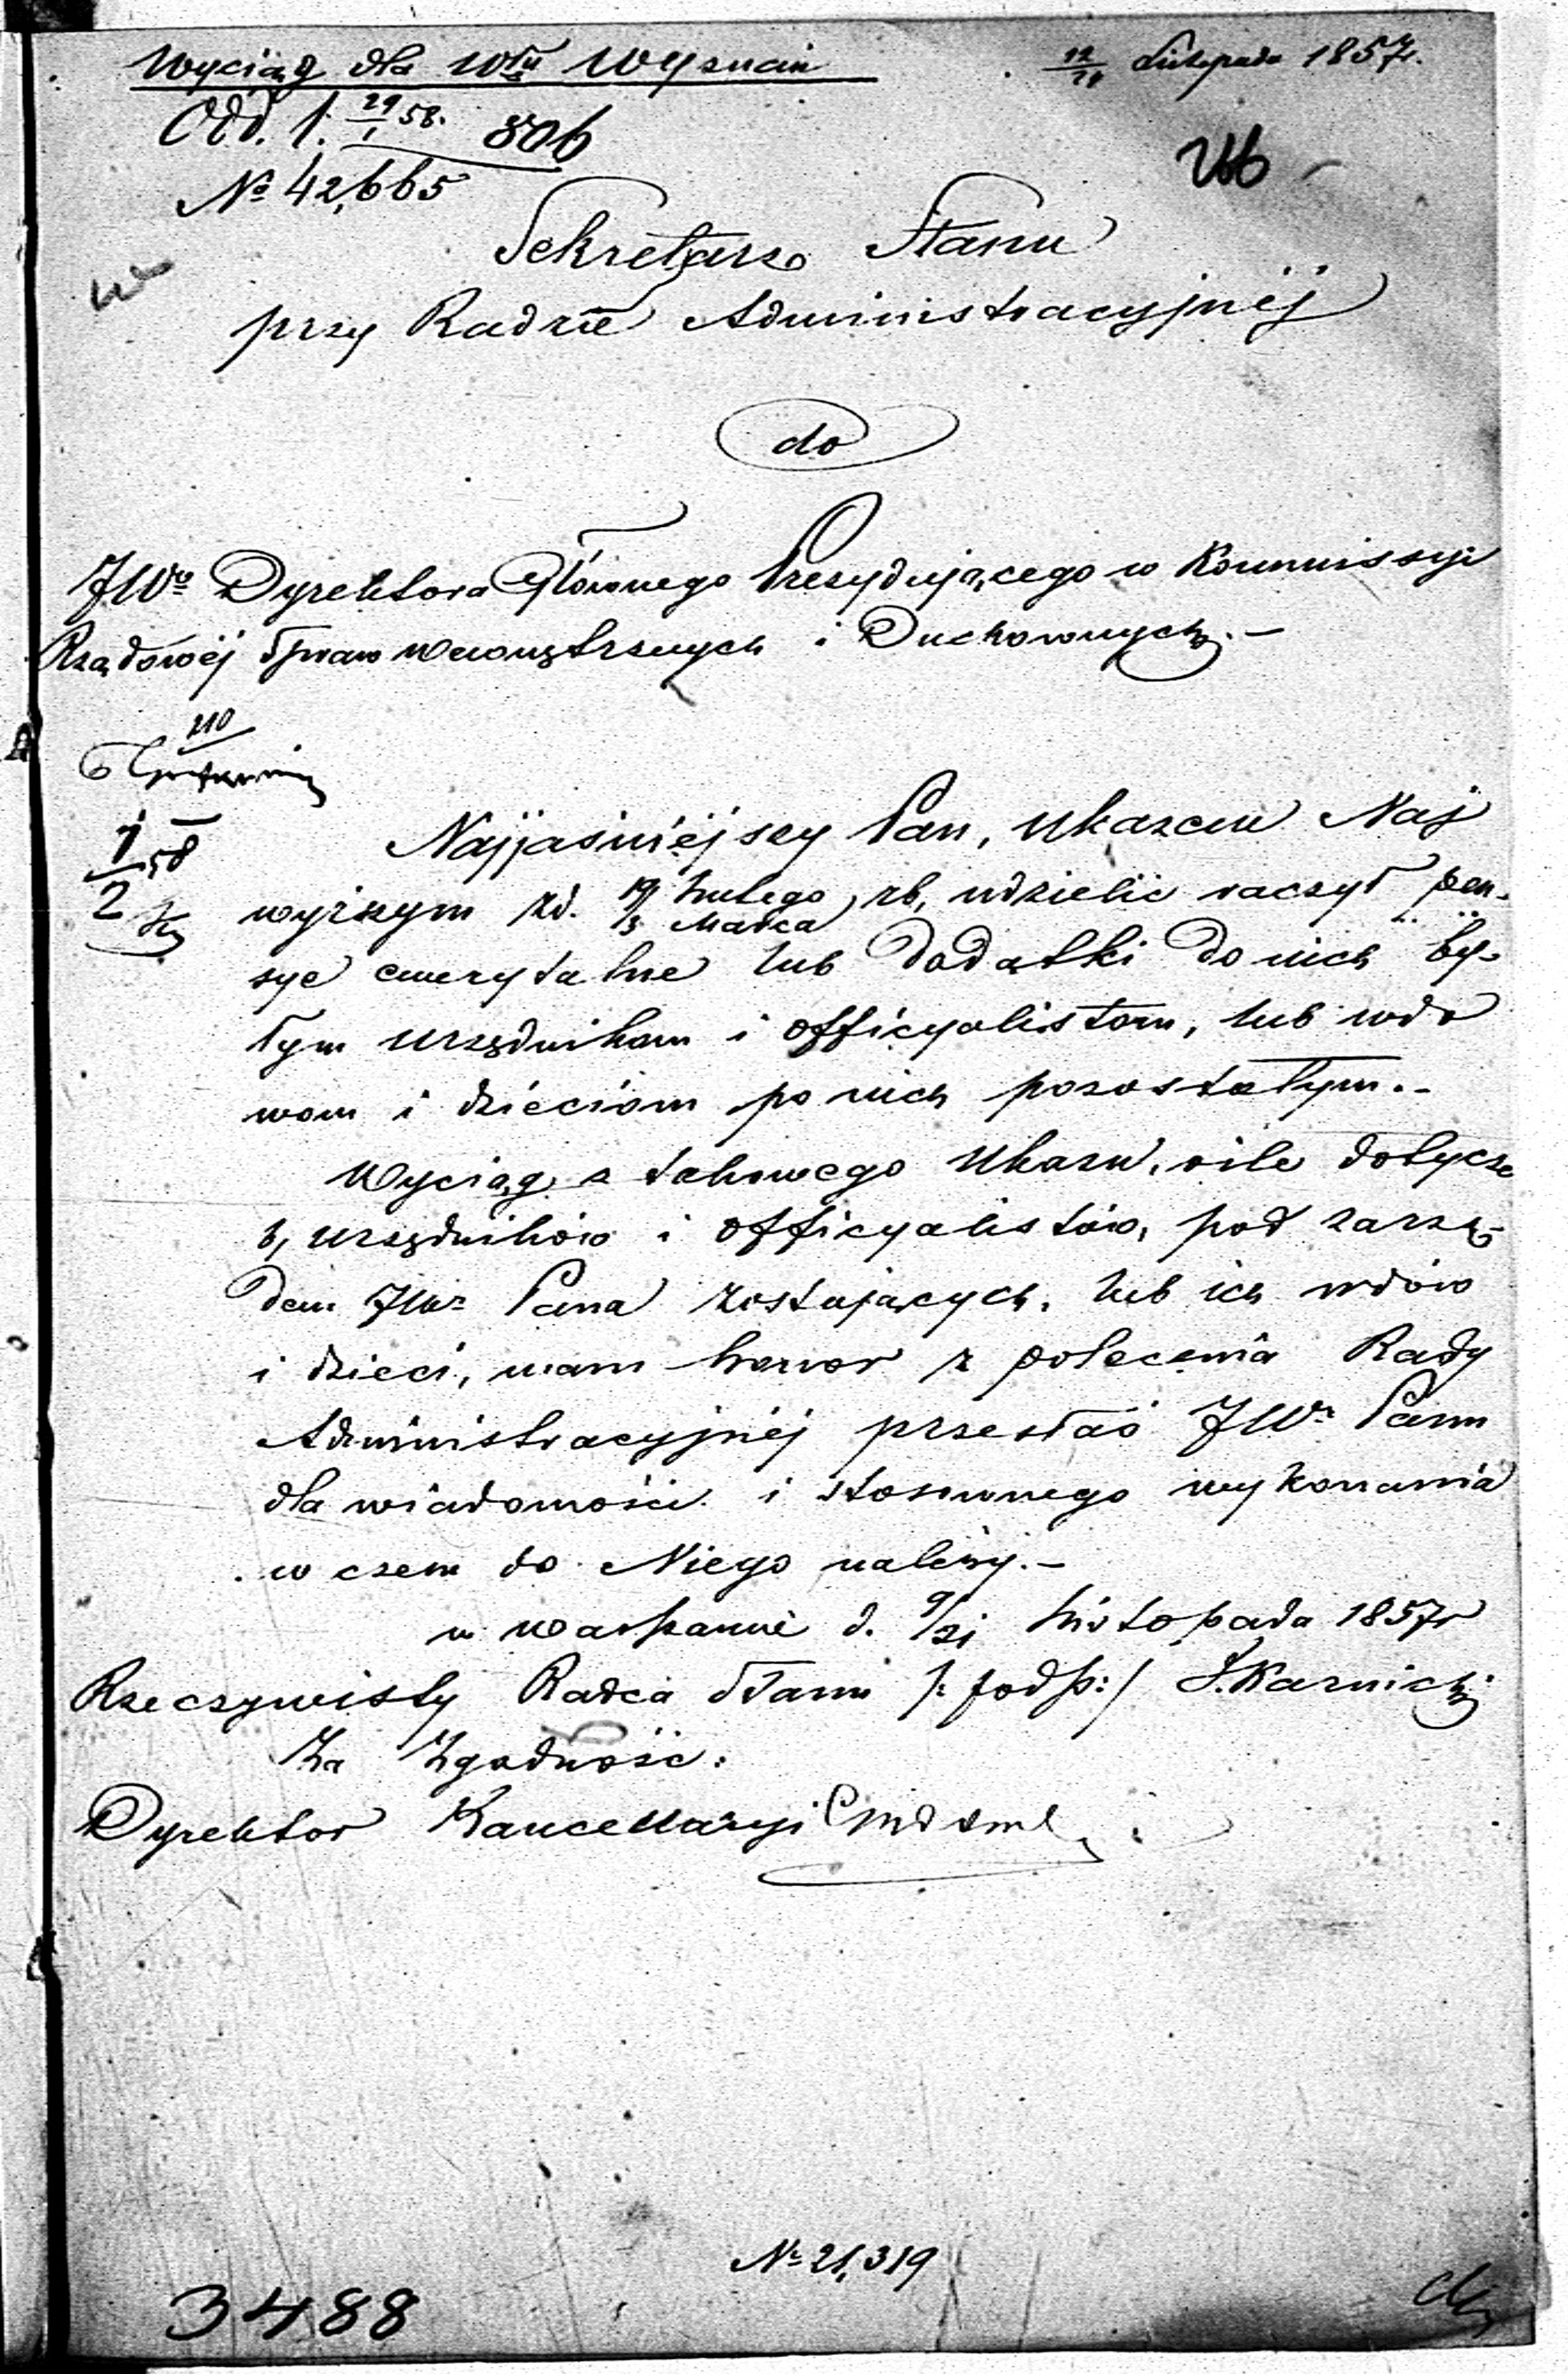 Wyciąg dla Włu Wyznań
12/24 Listopada 1857r.
Odd. 1. 29/1 58. 806
№ 42,665
Sekretarz Stanu
przy Radzie Administracyjnéj
do
JWo Dyrektora Głównego Prezydującego w Kommissyi
Rządowéj Spraw Wewnętrznych i Duchownych.—
210
1/2 58
Najjaśniéjszy Pan, Ukazem Naj
wyższym zd. 19 Lutego/3 Marca rb, udzielić raczył pen-
sye emerytalne lub dodatki do nich by-
łym urzędnikom i officyalistom, lub wdo
wom i dzieciom po nich pozostałym.-
Wyciąg z takowego Ukazu, o ile dotycze
b, urzędników i officyalistów, pod zarzą-
dem JWo Pana zostających, lub ich wdów
i dzieci, mam honor z polecenia Rady
Administracyjnéj przesłać JWu Panu
dla wiadomości i stosownego wykonania
w czem do Niego należy.—
w Warszawie d. 9/21 Listopada 1857r
Rzeczywisty Radca Stanu /: podp:/ J. Karnicki
Za Zgodność:
Dyrektor Kancellaryi
№ 21,319
3488